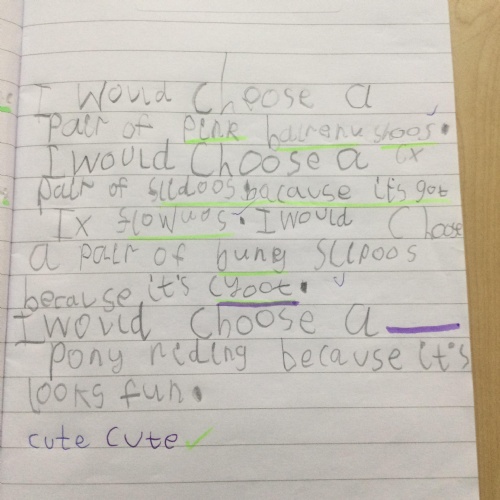 I would Choose a
pair of pink bairenu shoos.
I would Choose a
pair of slldoos bacause it's got
Ix flowuos. I would Choose
a pair of buney Sllpoos
because it's cyoot.
I would choose a
pony riding because it's
looks fun.
cute cute